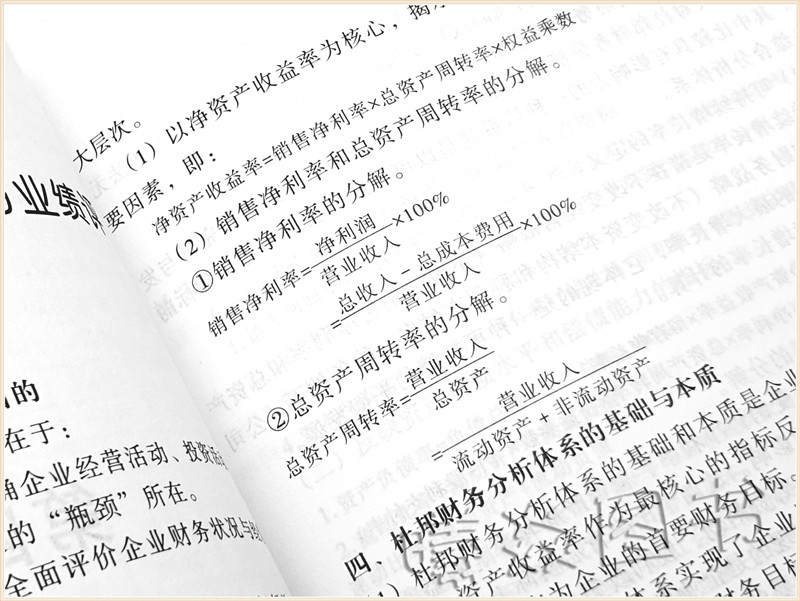 业绩
的
在于：
企业经营活动、投资活
的“瓶颈”所在。
全面评价企业财务状况与
大层次。
（1）以净资产收益率为核心，
要因素，即：
净资产收益率=销售净利率×总资产周转率×权益乘数
（2）销售净利率和总资产周转率的分解。
①销售净利率的分解。
销售净利率=净利润/营业收入×100%
=总收入-总成本费用/营业收入×100%
②总资产周转率的分解。
总资产周转率=营业收入/总资产
=营业收入/流动资产+非流动资产
四、杜邦财务分析体系的基础与本质
1）杜邦财务分析体系的基础和本质是企业
资产收益率作为最核心的指标反
为企业的首要财务目标。
体系实现了企业
财务目标